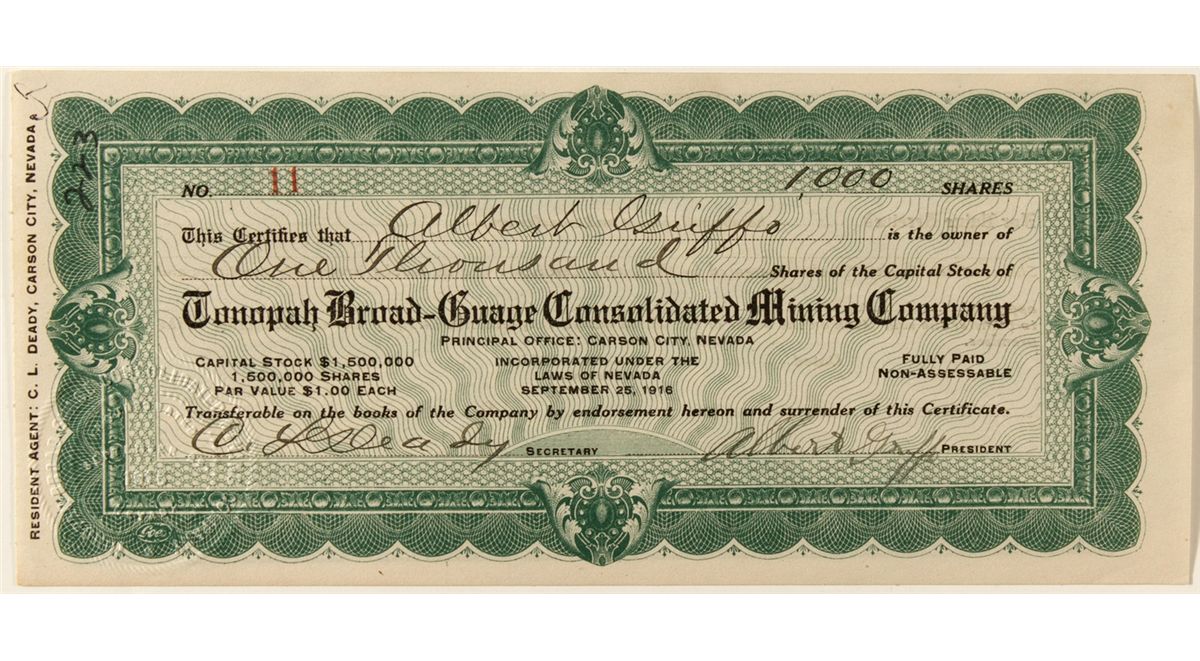 RESIDENT AGENT: C. L. DEADY, CARSON CITY, NEVADA
223
NO. 11 1,000 SHARES
This Certifies that Albert Griffo is the owner of
One Thousand Shares of the Capital Stock of
Tonopah Broad-Guage Consolidated Mining Company
PRINCIPAL OFFICE: CARSON CITY, NEVADA
CAPITAL STOCK $1,500,000
1,500,000 SHARES
PAR VALUE $1.00 EACH
INCORPORATED UNDER THE
LAWS OF NEVADA
SEPTEMBER 25, 1916
FULLY PAID
NON-ASSESSABLE
Transferable on the books of the Company by endorsement hereon and surrender of this Certificate.
C. L. Deady SECRETARY Albert PRESIDENT